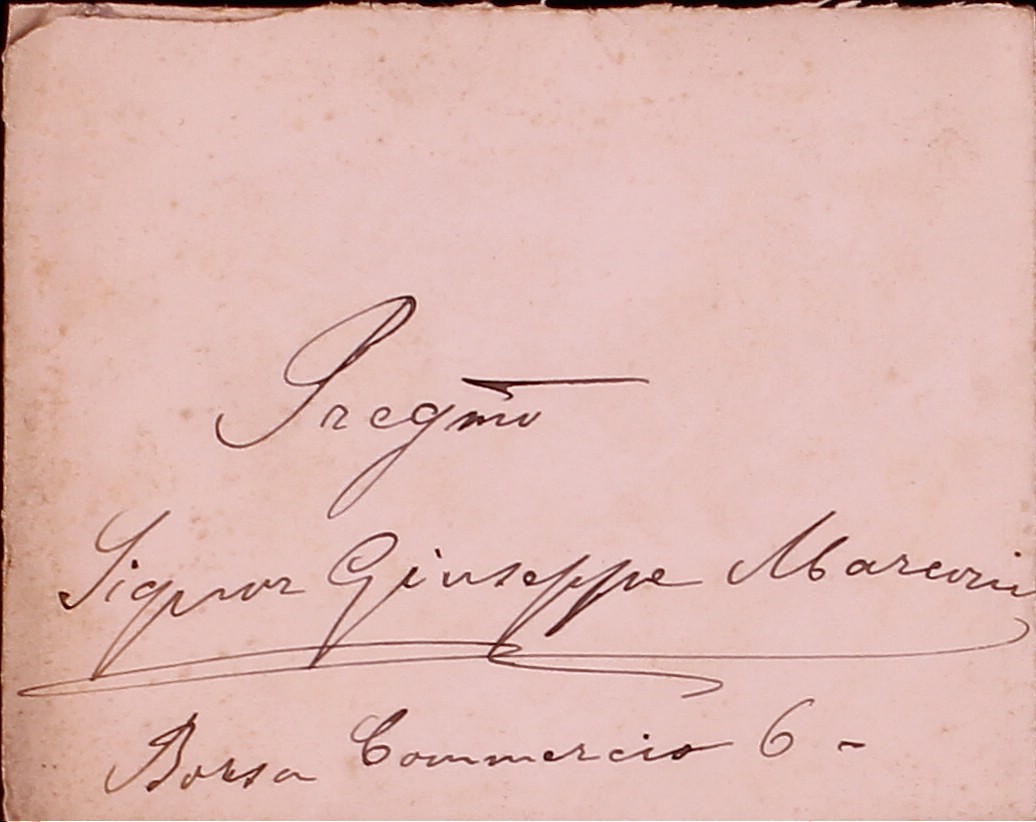 Pregmo
Signor Giuseppe Marconi
Borsa Commercio 6 -